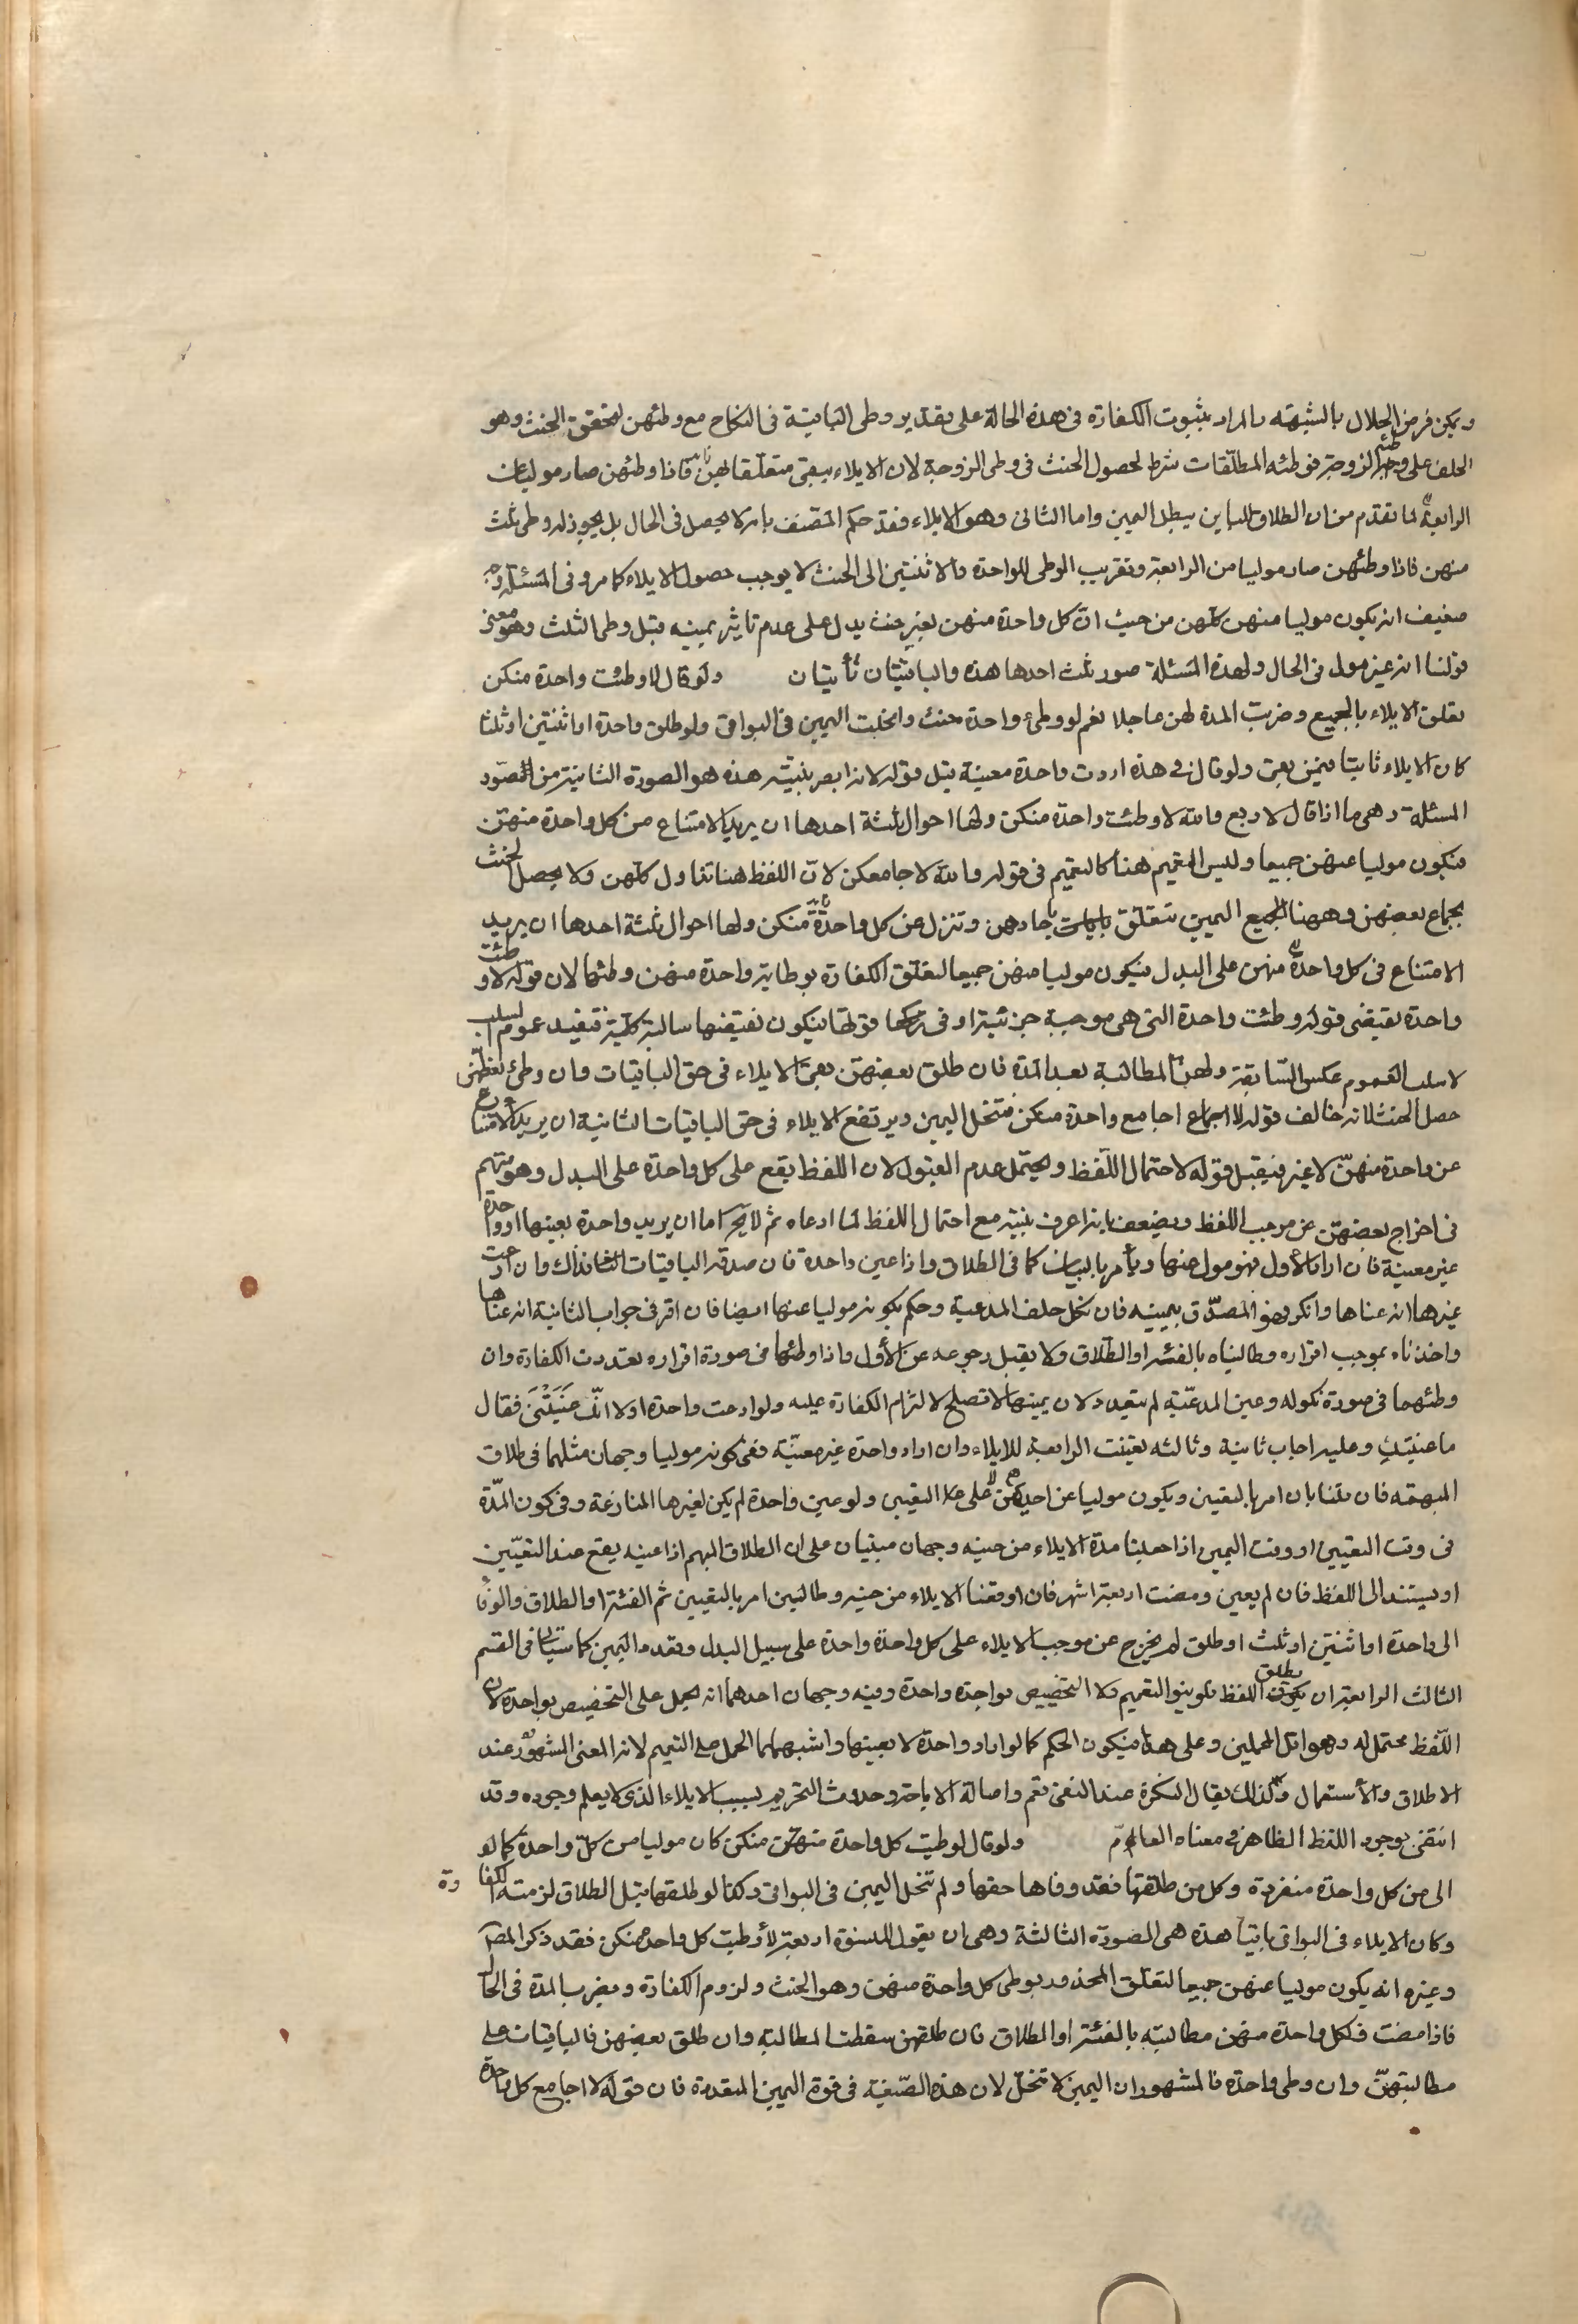 ويمكن فرض الحلال بالشبهة والمراد بثبوت الكفارة في هذه الحالة على تقدير وطى الباقية في النكاح مع وطئهن لتحقق الحنث وهو
الحلف على الزوجة فوطئه المطلقات شرط لحصول الحنث في وطى الزوجة لان الايلاء يبقى متعلقا بهن فاذا وطئهن صار موليا من
الرابعة لما تقدم من ان الطلاق الباين يبطل اليمين واما الثانى وهو الايلاء فقد حكم المصنف بانه لا يحصل في الحال بل يجوز له وطى ثلث
منهن فاذا وطئهن صار موليا من الرابعة وتقريب الوطى للواحدة والاثنتين الى الحنث لا يوجب حصول الايلاء كما مر وفى المسئلة وجه
ضعيف انه يكون موليا منهن كلهن من حيث ان كل واحدة منهن بغير حنث يدل على عدم تاثير يمينه قبل وطى الثلث وهو معنى
قولنا انه غير مول في الحال ولهذة المسئلة صور ثلث احدها هذه والباقيتان تأتيان ولو قال لا وطئت واحدة منكن
تعلق الايلاء بالجميع وضربت المدة لهن عاجلا نعم لو وطئ واحدة حنث وانحلت اليمين في البواقى ولو طلق واحدة او اثنتين او ثلثا
كان الايلاء ثابتا فيمن بقى ولو قال في هذه اردت واحدة معينة قبل قوله لانه ابصر بنيته هذه هو الصورة الثانية من صور
المسئلة وهى ما اذا قال لاربع والله لا وطئت واحدة منكن ولها احوال ثلثة احدها ان يريد الامتناع من كل واحدة منهن
فيكون موليا عنهن جميعا وليس التعميم هنا كالتعميم في قوله والله لا جامعتكن لان اللفظ هنا تناول كلهن ولا يحصل الحنث
بجماع بعضهن وههنا الجميع اليمين تتعلق باحادهن وتنزل عن كل واحدة منكن ولها احوال ثلثة احدها ان يريد
الامتناع في كل واحدة منهن على البدل فيكون موليا منهن جميعا لتعلق الكفارة بوطى اية واحدة منهن وطئها لان قوله لا وطئت
واحدة نقيض قوله وطئت واحدة التى هى موجبة جزئية او في قوتها فيكون نقيضها سالبة كلية فتفيد عموم السلب
لا سلب العموم عكس السابقة ولهن المطالبة بعد المدة فان طلق بعضهن بقى الايلاء في حق الباقيات وان وطئ بعضهن
حصل الحنث لانه خالف قوله لا اجامع واحدة منكن فتنحل اليمين ويرتفع الايلاء في حق الباقيات الثانية ان يريد الامتناع
عن واحدة منهن لا غير فيقبل قوله لاحتمال اللفظ ويحتمل عدم القبول لان اللفظ يقع على كل واحدة على البدل وهو متهم
في اخراج بعضهن عن موجب اللفظ ويضعف بانه اعرف بنيته مع احتمال اللفظ لما ادعاه ثم لا يخ اما ان يريد واحدة بعينها او واحدة
غير معينة فان اراد الأول فهو مول منها ويأمر بالبيان كما في الطلاق واذا عين واحدة فان صدقه الباقيات فذاك وان ادعت
غيرها انه عناها وانكر فهو المصدق بيمينه فان نكل حلف المدعية وحكم بكونه موليا عنها ايضا فان اقر في جواب الثانية انه عناها
واخذناه بموجب اقراره وطالبناه بالفئة او الطلاق ولا يقبل رجوعه عن الأول واذا وطئهما في صورة اقراره تعددت الكفارة وان
وطئهما في صورة نكوله وعين المدعية لم تتعدد لان يمينها لا تصلح لالتزام الكفارة عليه ولو ادعت واحدة اولا انك عنيتنى فقال
ما عنيتك وعليه اجاب ثانية وثالثه تعينت الرابعة للايلاء وان اراد واحدة غير معينة ففى كونه موليا وجهان مثلهما في طلاق
المبهمة فان قلنا بان امر بالتعيين ويكون موليا عن احديهن لا على التعيين ولو عين واحدة لم يكن لغيرها المنازعة وفى كون المدة
في وقت التعيين او وقت اليمين اذا جعلنا مدة الايلاء من حينه وجهان مبنيان على ان الطلاق المبهم اذا عينه يقع عند التعيين
او يستند الى اللفظ فان لم يعين ومضت اربعة اشهر فان اوقعنا الايلاء من حينه وطالبن امر بالتعيين ثم الفئة او الطلاق والو فا
الى واحدة او اثنتين او ثلث او طلق لم يخرج عن موجب الايلاء على كل واحدة واحدة على سبيل البدل وتعدد اليمين كما سيأتى في القسم
الثالث الرابعة ان يطلق اللفظ فلو ينو التعميم ولا التخصيص بواحدة واحدة وفيه وجهان احدهما انه يحمل على التخصيص بواحدة لان
اللفظ محتمل له وهو اقل المحملين وعلى هذا فيكون الحكم كما لو اراد واحدة لا بعينها واشبههما الحمل على التعميم لانه المعنى المشهور عند
الاطلاق والاستعمال ولذلك يقال النكرة عند النفى تعم واصالة الاباحة وحدوث التحريم بسبب الايلاء الذى لا يعلم وجوده وقد
انتفى بوجود اللفظ الظاهر في معناه العام ولو قال لا وطيت كل واحدة منكن كان موليا من كل واحدة كما لو
الى من كل واحدة منفردة وكل من طلقها فقد وفاها حقها ولم تنحل اليمين في البواقى وكذا لو وطئها قبل الطلاق لزمته الكفارة
وكان الايلاء في البواقى باقيا هذة هى الصورة الثالثة وهى ان يقول للنسوة اربعة لا وطيت كل واحدة منكن فقد ذكر المصنف
وغيره انه يكون موليا عنهن جميعا لتعلق المحذور بوطى كل واحدة منهن وهو الحنث ولزوم الكفارة ويضرب المدة في الحال
فاذا مضت فلكل واحدة منهن مطالبته بالفئة او الطلاق فان طلقهن سقطت المطالبة وان طلق بعضهن فالباقيات على
مطالبتهن وان وطى واحدة فالمشهور ان اليمين لا تنحل لان هذه الصيغة في قوة اليمين المتعددة فان قوله لا اجامع كل واحدة